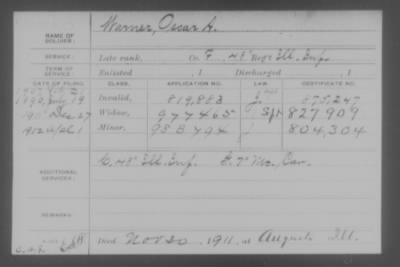 NAME OF SOLDIER: Warner, Oscar A.
SERVICE: Late rank, Co. F, 48" Reg't Ill. Inf.
TERM OF SERVICE: Enlisted , 1 Discharged , 1
DATE OF FILING. CLASS. APPLICATION NO. LAW. CERTIFICATE NO.
1890, July 19 Invalid, 819,883 675,247
1911 Dec 27 Widow, 977465 827909
1912 Apl 1 Minor, 988794 804,304
ADDITIONAL SERVICES: C. 48" Ill. Inf.
REMARKS:
Died Nov 20 1911, at Augusta Ill.